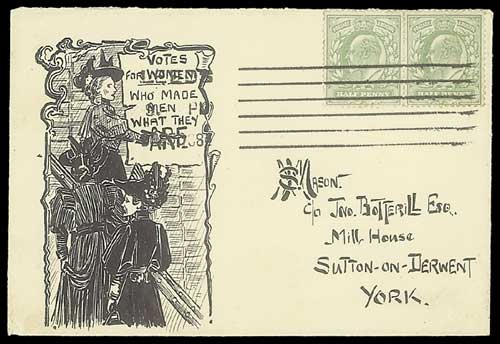 VOTES
FOR WOMEN
WHO MADE
MEN
WHAT THEY
ARE
MASON.
C/o JNO. BOTTERILL ESQ.
Mill House
SUTTON-ON-DERWENT
YORK.